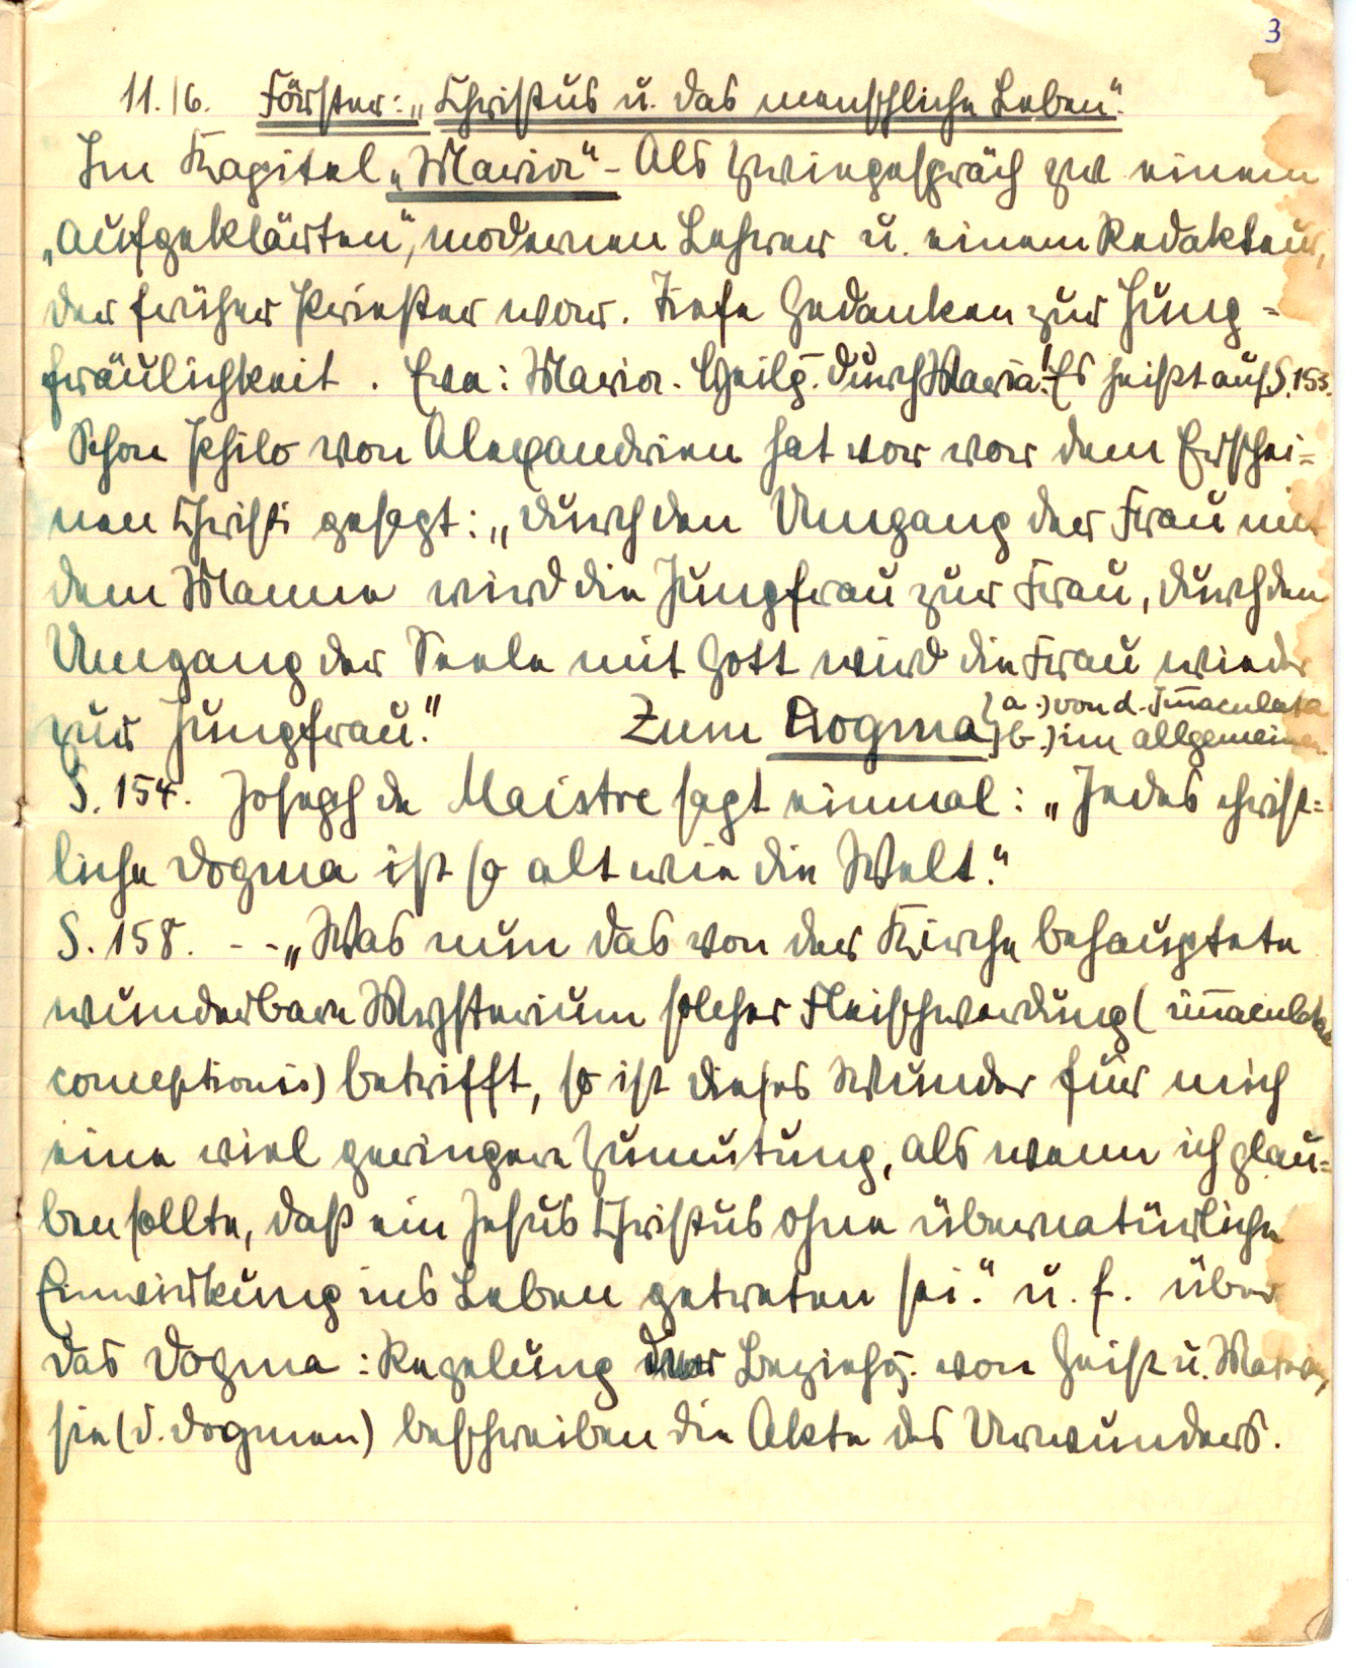 3
11./6. Förster: „Christus u. das menschliche Leben".
Im Kapitel „Maria" - Als Zwiegespräch zw einem
„aufgeklärten", modernen Lehrer u. einem Redakteur,
der früher Priester war. Tiefe Gedanken zur Jung=
fräulichkeit. Eva: Maria. Heilg. durch Maria! Es heißt auf S. 153.
Schon Philo von Alexandrien hat vor vor dem Erschei=
nen Christi gesagt: „durch den Umgang der Frau mit
dem Manne wird die Jungfrau zur Frau, durch den
Umgang der Seele mit Gott wird die Frau wieder
zur Jungfrau." Zum Dogma } a.) von d. Im̄aculata
b.) im allgemeinen.
S. 154. Joseph de Maistre sagt einmal: „Jedes christ=
liche Dogma ist so alt wie die Welt."
S. 158. - - „Was nun das von der Kirche behauptete
wunderbare Mysterium solcher Fleischwerdung (im̄aculatae
conceptionis) betrifft, so ist dieses Wunder für mich
eine viel geringere Zumutung, als wenn ich glau=
ben sollte, daß ein Jesus Christus ohne übernatürliche
Einwirkung ins Leben getreten sei." u. f. über
das Dogma: Regelung der Beziehg. von Geist u.
sie (d. Dogmen) beschreiben die Akte des Urwunders.